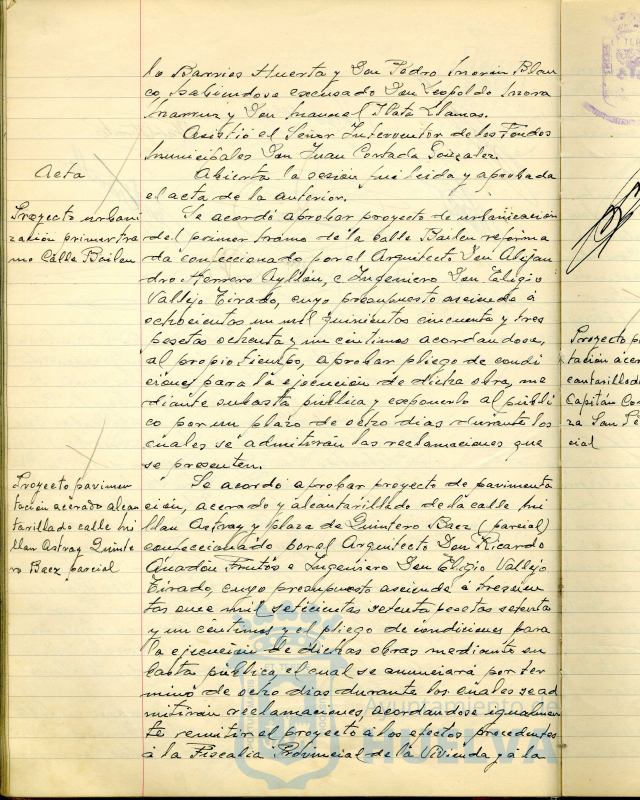 lo Barrios Huerta y Don Pedro Morón Blan
co, habiendose excusado Don Leopoldo Mora
Marruz y Don Manuel Plata Llamas.
Asistió el Señor Interventor de los Fondos
Municipales Don Juan Cortada Gonzalez.
Acta
Abierta la sesión fué leida y aprobada
el acta de la anterior.
Proyecto urbani
zación primer tra
mo Calle Bailen
Se acordó aprobar proyecto de urbanización
del primer tramo de la calle Bailen reforma
da confeccionado por el Arquitecto Don Alejan
dro Herrero Ayllón, e Ingeniero Don Eligio
Vallejo Tirado, cuyo presupuesto asciende á
ochocientas un mil quinientas cincuenta y tres
pesetas ochenta y un centimos acordandose,
al propio tiempo, aprobar pliego de condi
ciones para la ejecución de dicha obra, me
diante subasta publica y exponerlo al públi
co por un plazo de ocho dias durante los
cuales se admitirán las reclamaciones que
se presenten.
Proyecto pavimen
tación acerado alcan
tarillado calle Mi
llan Astray Quinte
ro Baez parcial
Se acordó aprobar proyecto de pavimenta
ción, acerado y alcantarillado de la calle Mi
llan Astray y plaza de Quintero Baez (parcial)
confeccionado por el Arquitecto Don Ricardo
Anadón Frutos e Ingeniero Don Eligio Vallejo
Tirado, cuyo presupuesto asciende á trescien
tas once mil seticientas setenta pesetas setenta
y un centimos y el pliego de condiciones para
la ejecución de dichas obras mediante su
basta publica, el cual se anunciará por ter
mino de ocho dias durante los cuales se ad
mitirán reclamaciones, acordandose igualmen
te remitir el proyecto á los efectos procedentes
á la Fiscalia Provincial de la Vivienda y á la
Proyecto pa
tación acer
cantarillado
Capitán Cor
za San Pe
cial
Ayuntamiento de
HUELVA